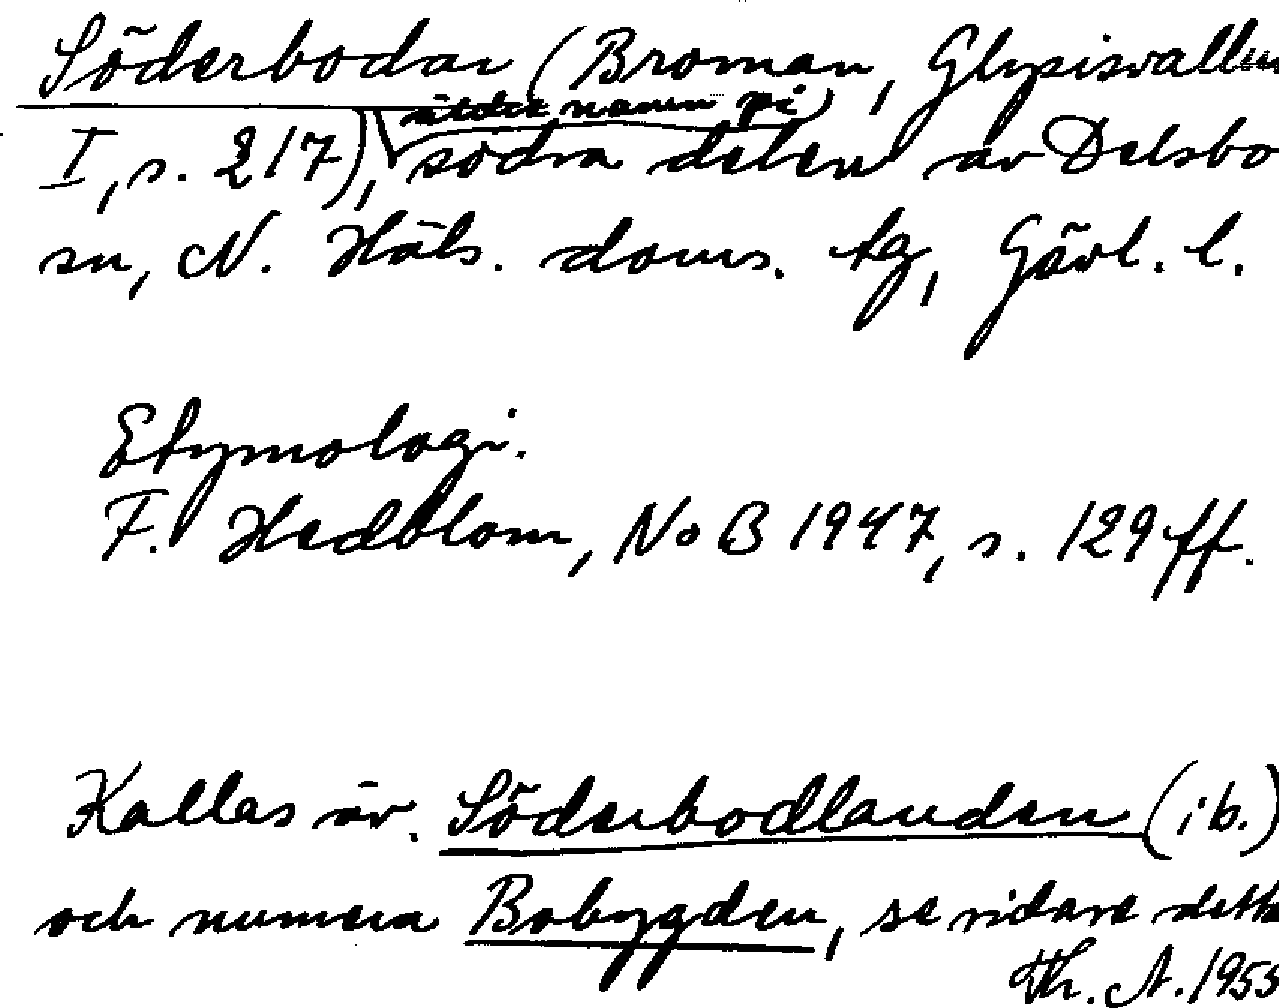 Söderbodar (Broman, Glysisvallur
äldre namn på
I, s. 217), södra delen av Delsbo
sn, N. Häls. doms. tg, Gävl. l.
Etymologi.
F. Hedblom, NoB 1947, s. 129 ff.
Kallas äv. Söderbodlanden (ib.)
och numera Bobygden, se vidare detta
Th. A. 1953